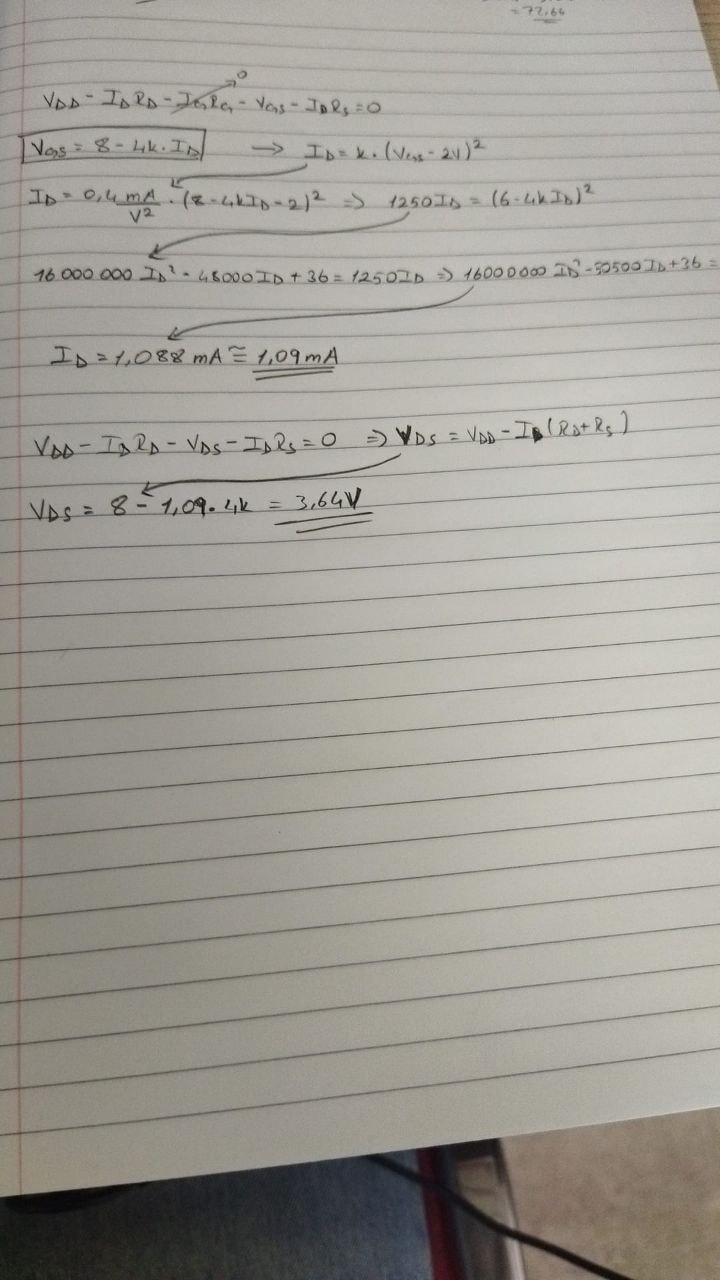 = 72,66
V_DD - I_D R_D - I_G R_G - V_GS - I_D R_S = 0
0
V_GS = 8 - 4k . I_D → I_D = k . (V_GS - 2V)²
I_D = 0,4 mA/V² . (8 - 4k I_D - 2)² ⇒ 1250 I_D = (6 - 4k I_D)²
16 000 000 I_D² - 48000 I_D + 36 = 1250 I_D ⇒ 16000000 I_D² - 50500 I_D + 36 =
I_D = 1,088 mA ≅ 1,09 mA
V_DD - I_D R_D - V_DS - I_D R_S = 0 ⇒ V_DS = V_DD - I_D (R_D + R_S)
V_DS = 8 - 1,09 . 4k = 3,64V